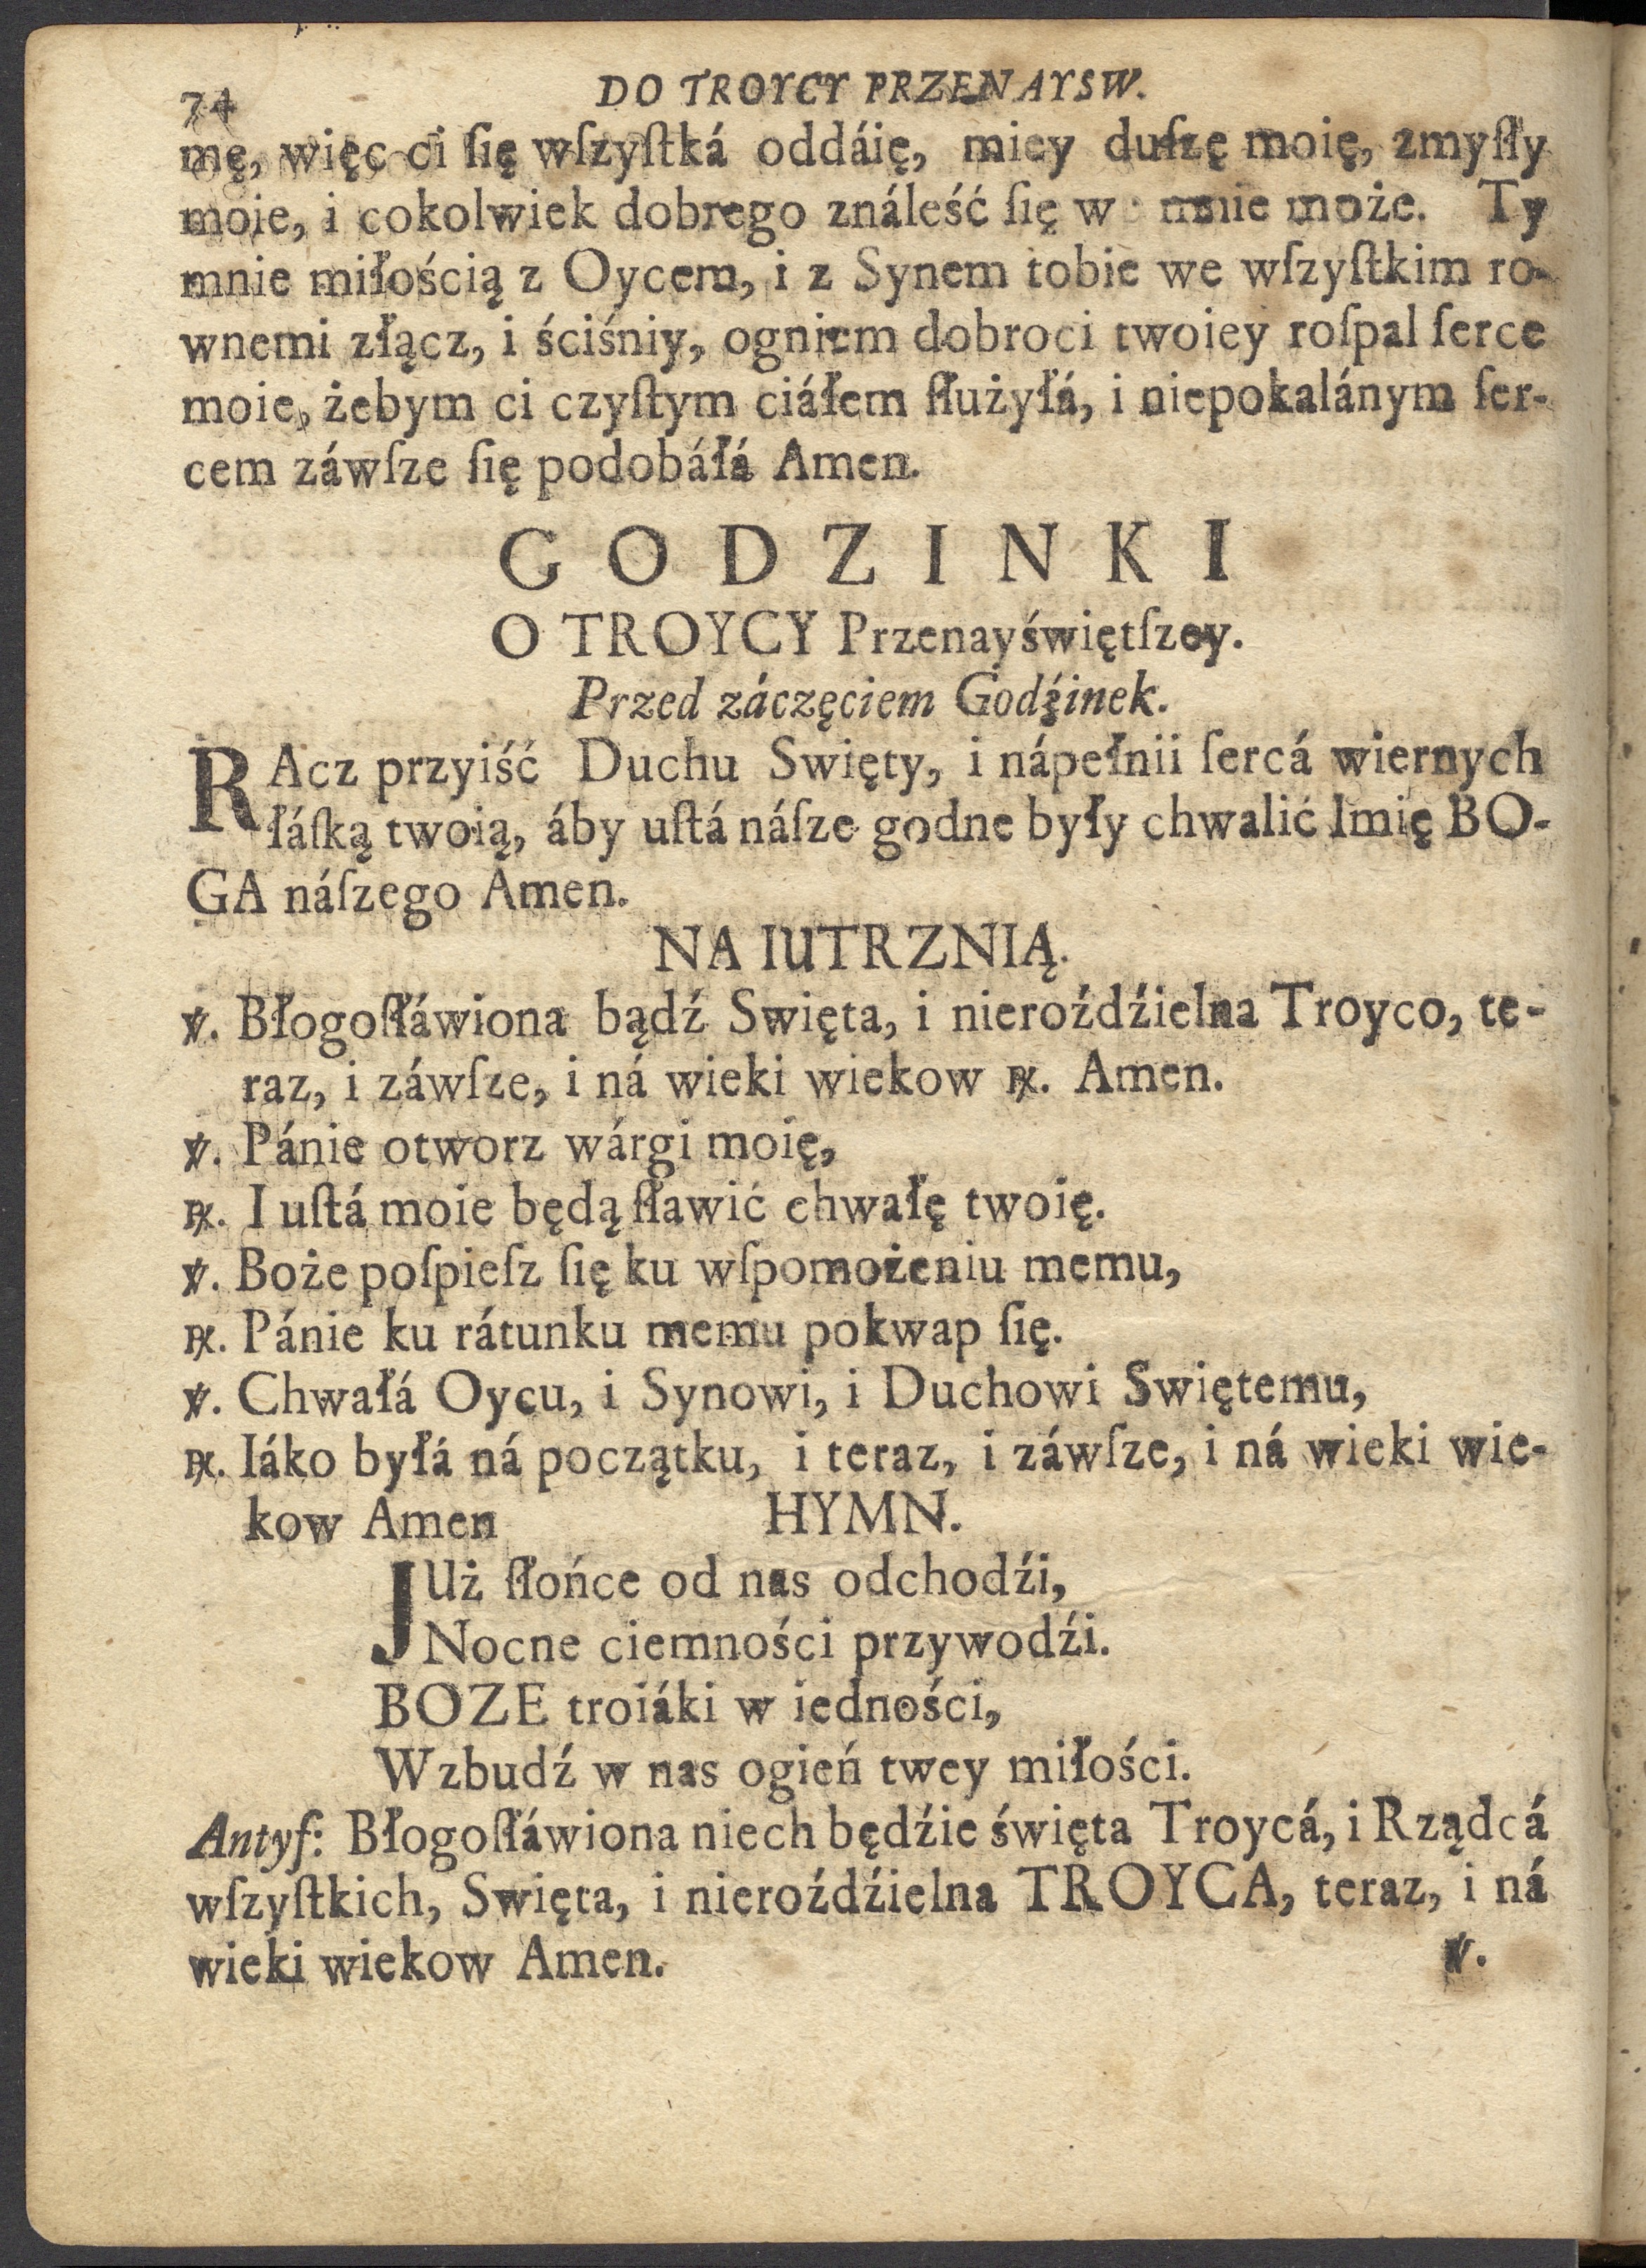 74 DO TROYCY PRZENAYSW.
mę, więc ci ſię wſzyſtká oddáię, miey duſzę moię, zmyſły
moie, i cokolwiek dobrego ználeść ſię w mnie może. Ty
mnie miłością z Oycem, i z Synem tobie we wſzyſtkim ro-
wnemi złącz, i ściśniy, ogniem dobroci twoiey roſpal ſerce
moie, żebym ci czyſtym ciáłem ſłużyłá, i niepokalánym ſer-
cem záwſze ſię podobáłá Amen.
GODZINKI
O TROYCY Przenayświętſzey.
Przed záczęciem Godźinek.
RAcz przyiść Duchu Swięty, i nápełnii ſercá wiernych
łáſką twoią, áby uſtá náſze godne były chwalić Imię BO-
GA náſzego Amen.
NA IUTRZNIĄ.
℣. Błogoſłáwiona bądź Swięta, i nieroźdźielna Troyco, te-
raz, i záwſze, i ná wieki wiekow ℟. Amen.
℣. Pánie otworz wárgi moię,
℟. I uſtá moie będą ſławić chwałę twoię.
℣. Boże poſpieſz ſię ku wſpomożeniu memu,
℟. Pánie ku rátunku memu pokwap ſię.
℣. Chwałá Oycu, i Synowi, i Duchowi Swiętemu,
℟. Iáko byłá ná początku, i teraz, i záwſze, i ná wieki wie-
kow Amen HYMN.
JUż ſłońce od nas odchodźi,
Nocne ciemności przywodźi.
BOZE troiáki w iedności,
Wzbudź w nas ogień twey miłości.
Antyf: Błogoſłáwiona niech będźie święta Troycá, i Rządcá
wſzyſtkich, Swięta, i nieroźdźielna TROYCA, teraz, i ná
wieki wiekow Amen. ℣.